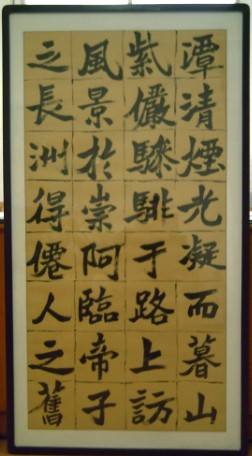 潭清煙光凝而暮山
紫儼驂騑于路上訪
風景於崇阿臨帝子
之長洲得僊人之舊